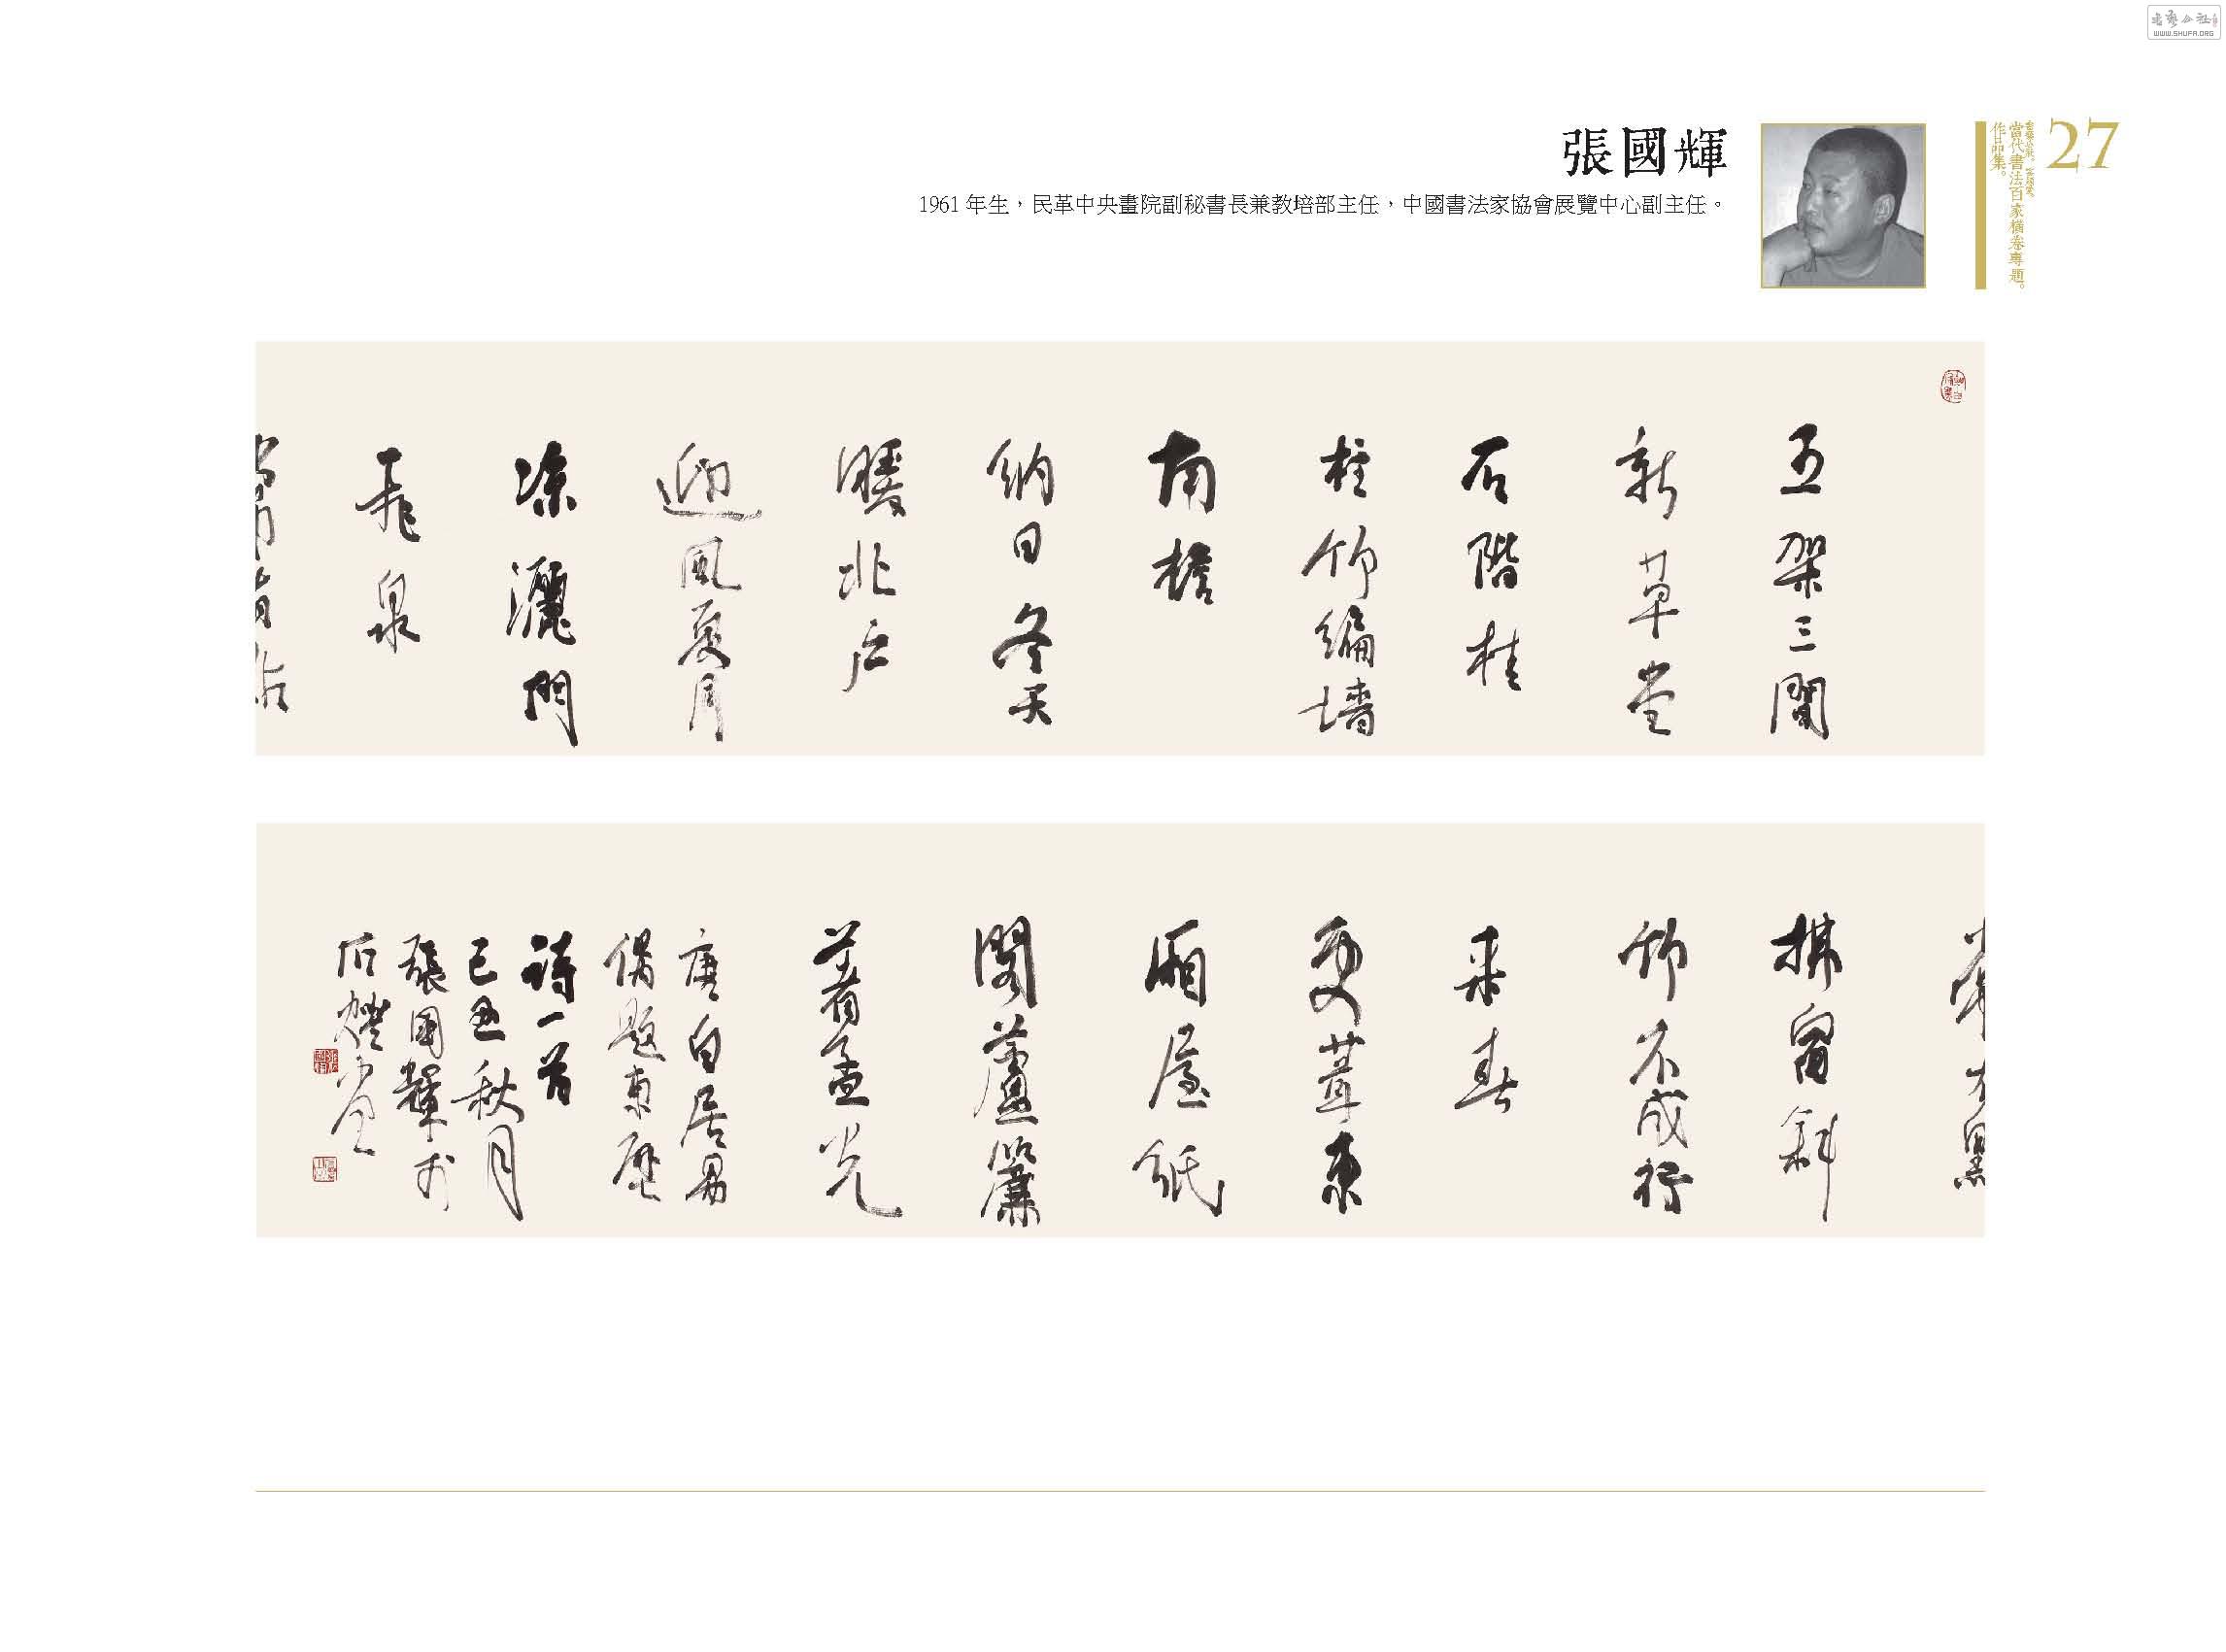 書藝公社
WWW.SHUFA.ORG
27
當代書法百家橫卷專題。
作品集。
張國輝
1961 年生，民革中央畫院副秘書長兼教培部主任，中國書法家協會展覽中心副主任。
五架三間
新草堂
石階桂
柱竹編墻
南檐
納日冬天
暖北户
迎風夏月
凉灑門
飛泉
拂窗斜
竹不成行
来春
更葺東
廂屋紙
閣蘆簾
著孟光
唐白居易
偶題東壁
詩一首
己丑秋月
張國輝於